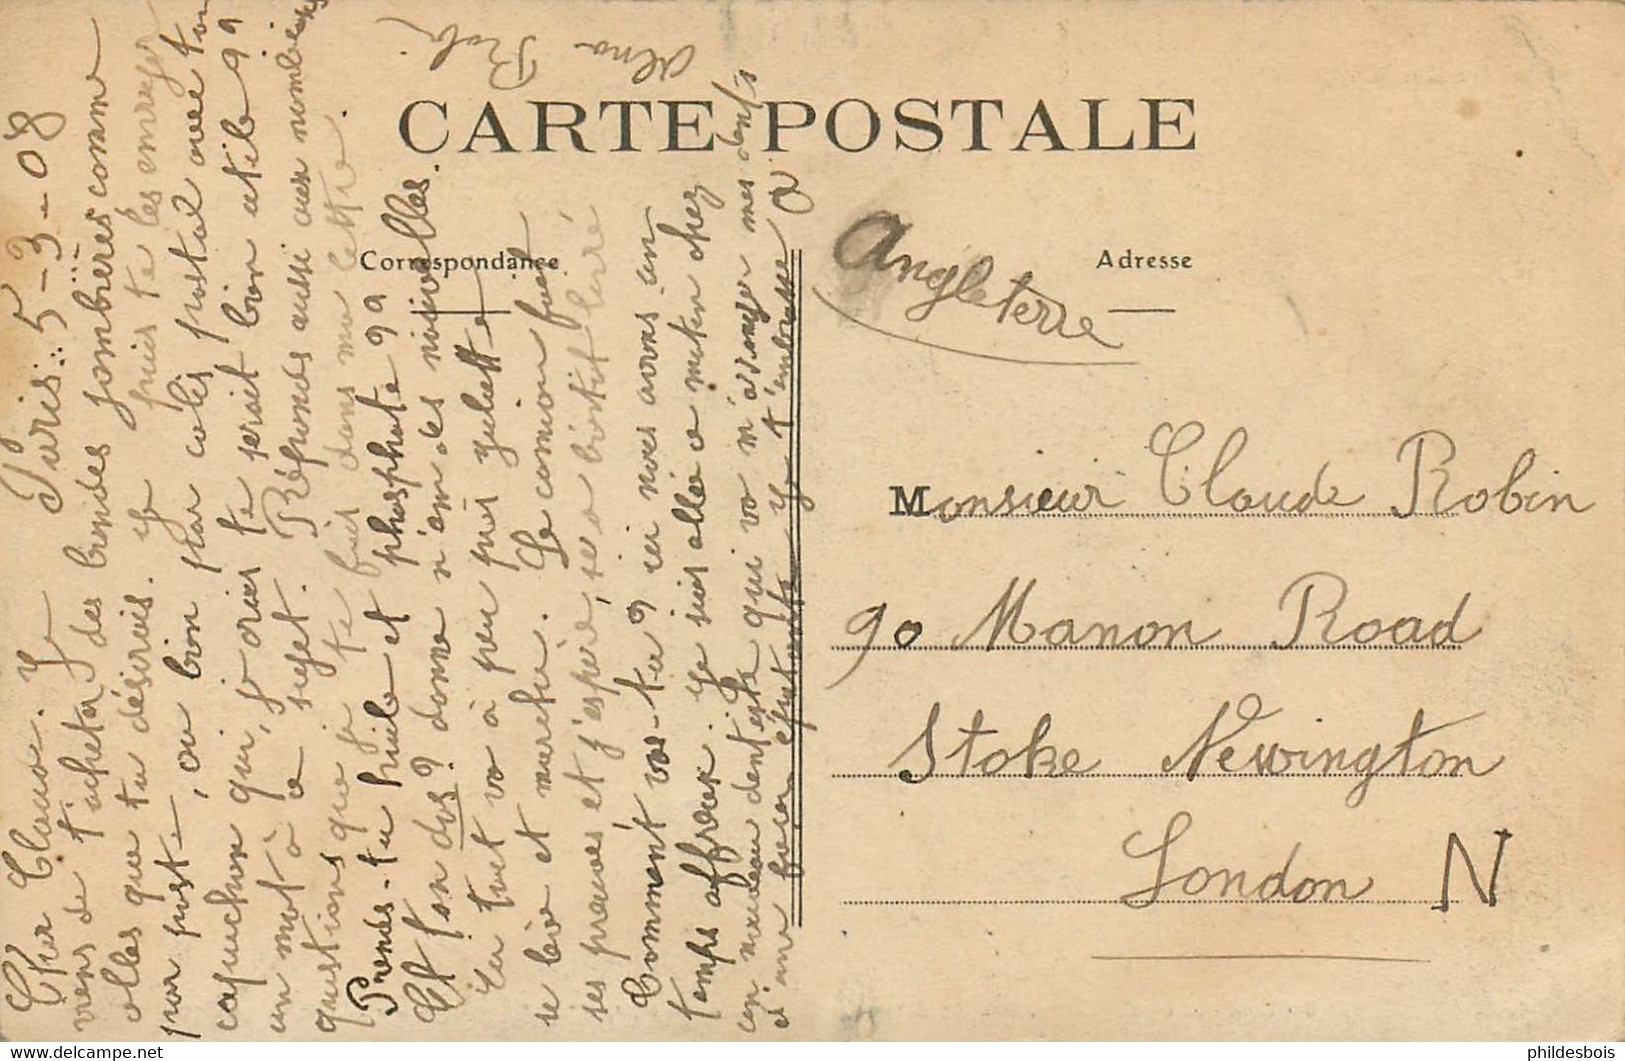 CARTE POSTALE
Correspondance
Adresse
Angleterre
Monsieur Claude Robin
90 Manon Road
Stoke Newington
London N
Paris 5-3-08
Cher Claude. Je
viens de t'acheter des bandes jambières comme
celles que tu désirais. Je puis te les envoyer
par poste, ou bien par colis postal avec ton
capuchon qui, je crois te serait bien utile ??
un mot à ce sujet. Réponds aussi aux nombreuses
questions que je te fais dans ma lettre.
Prends-tu huile et phosphate ??
Et ton dos? donne m'en des nouvelles.
Ici tout va à peu près Juliette
se lève et marche. Le camion fait
ses preuves et j'espère, sera bientôt livré
Comment vas-tu? ici nous avons un
temps affreux. Je suis allée ce matin chez
un nouveau dentiste qui va m'arranger mes dents
et une façon épatante Je t'embrasse
Alma Robin
phildesbois
www.delcampe.net